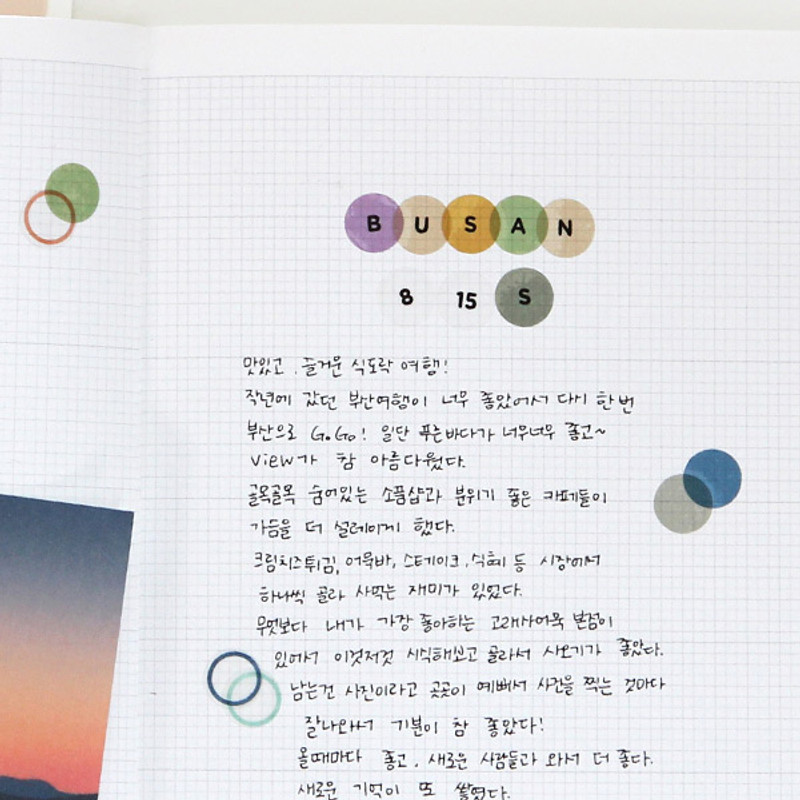 BUSAN
8 15 S
맛있고, 즐거운 식도락 여행!
작년에 갔던 부산여행이 너무 좋았어서 다시 한번
부산으로 GoGo! 일단 푸른바다가 너무너무 좋고~
view가 참 아름다웠다.
골목골목 숨어있는 소품샵과 분위기 좋은 카페들이
가슴을 더 설레이게 했다.
크림치즈튀김, 어묵바, 스테이크, 식혜 등 시장에서
하나씩 골라 사먹는 재미가 있었다.
무엇보다 내가 가장 좋아하는 고래사어묵 본점이
있어서 이것저것 시식해보고 골라서 사오기가 좋았다.
남는건 사진이라고 곳곳이 예뻐서 사진을 찍는 것마다
잘나와서 기분이 참 좋았다!
올때마다 좋고, 새로운 사람들과 와서 더 좋다.
새로운 기억이 또 쌓였다.